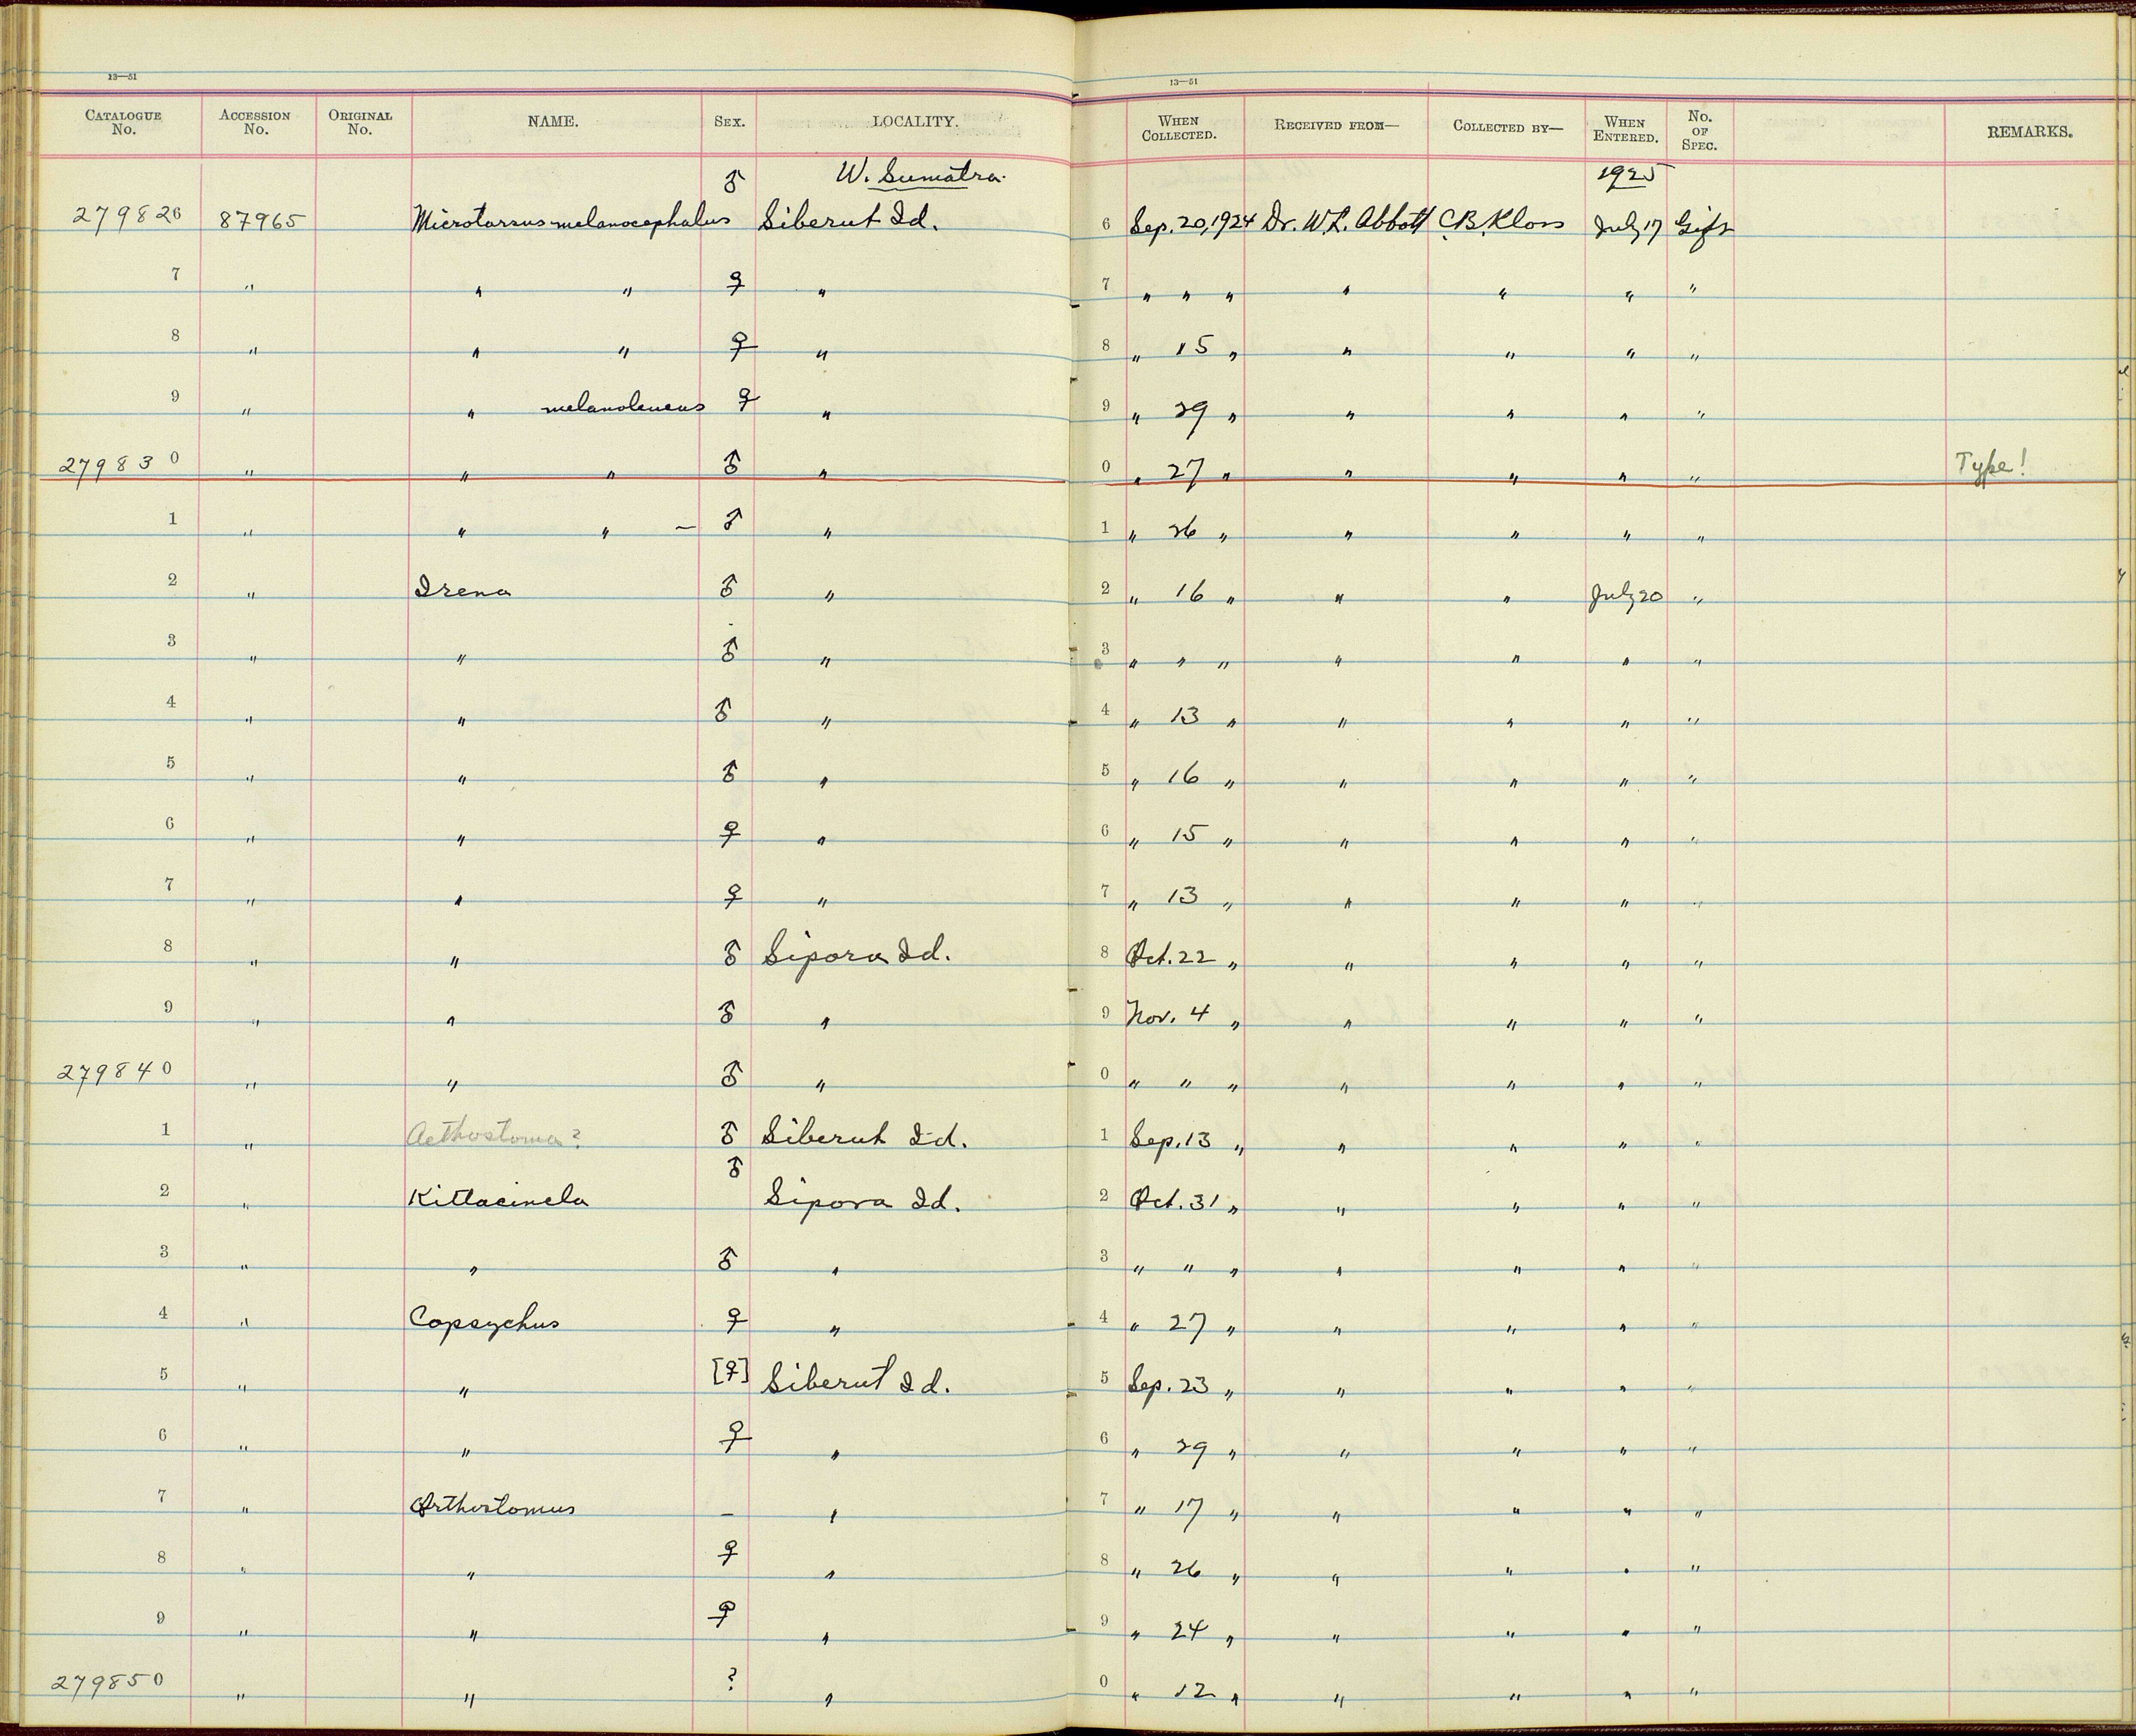 13—51 13—51
CATALOGUE No. ACCESSION No. ORIGINAL No. NAME. SEX. LOCALITY. WHEN COLLECTED. RECEIVED FROM— COLLECTED BY— WHEN ENTERED. No. OF SPEC. REMARKS.
W. Sumatra. 1925
279826 87965 Microtarsus melanocephalus ♂ Siberut Id. 6 Sep. 20, 1924 Dr. W.L. Abbott C.B. Kloss July 17 Gift
7 " " " ♀ " 7 " " " " " " "
8 " " " ♀ " 8 " 15 " " " " "
9 " " melanoleucus ♀ " 9 " 29 " " " " "
279830 " " " ♂ " 0 " 27 " " " " " Type!
1 " " " – ♂ " 1 " 26 " " " " "
2 " Irena ♂ " 2 " 16 " " " July 20 "
3 " " ♂ " 3 " " " " " " "
4 " " ♂ " 4 " 13 " " " " "
5 " " ♂ " 5 " 16 " " " " "
6 " " ♀ " 6 " 15 " " " " "
7 " " ♀ " 7 " 13 " " " " "
8 " " ♂ Sipora Id. 8 Oct. 22 " " " " "
9 " " ♂ " 9 Nov. 4 " " " " "
279840 " " ♂ " 0 " " " " " " "
1 " Aethostoma? ♂ Siberut Id. 1 Sep. 13 " " " " "
2 " Kittacincla ♂ Sipora Id. 2 Oct. 31 " " " " "
3 " " ♂ " 3 " " " " " " "
4 " Copsychus ♀ " 4 " 27 " " " " "
5 " " [♀] Siberut Id. 5 Sep. 23 " " " " "
6 " " ♀ " 6 " 29 " " " " "
7 " Orthotomus – " 7 " 17 " " " " "
8 " " ♀ " 8 " 26 " " " " "
9 " " ♀ " 9 " 24 " " " " "
279850 " " ? " 0 " 12 " " " " "